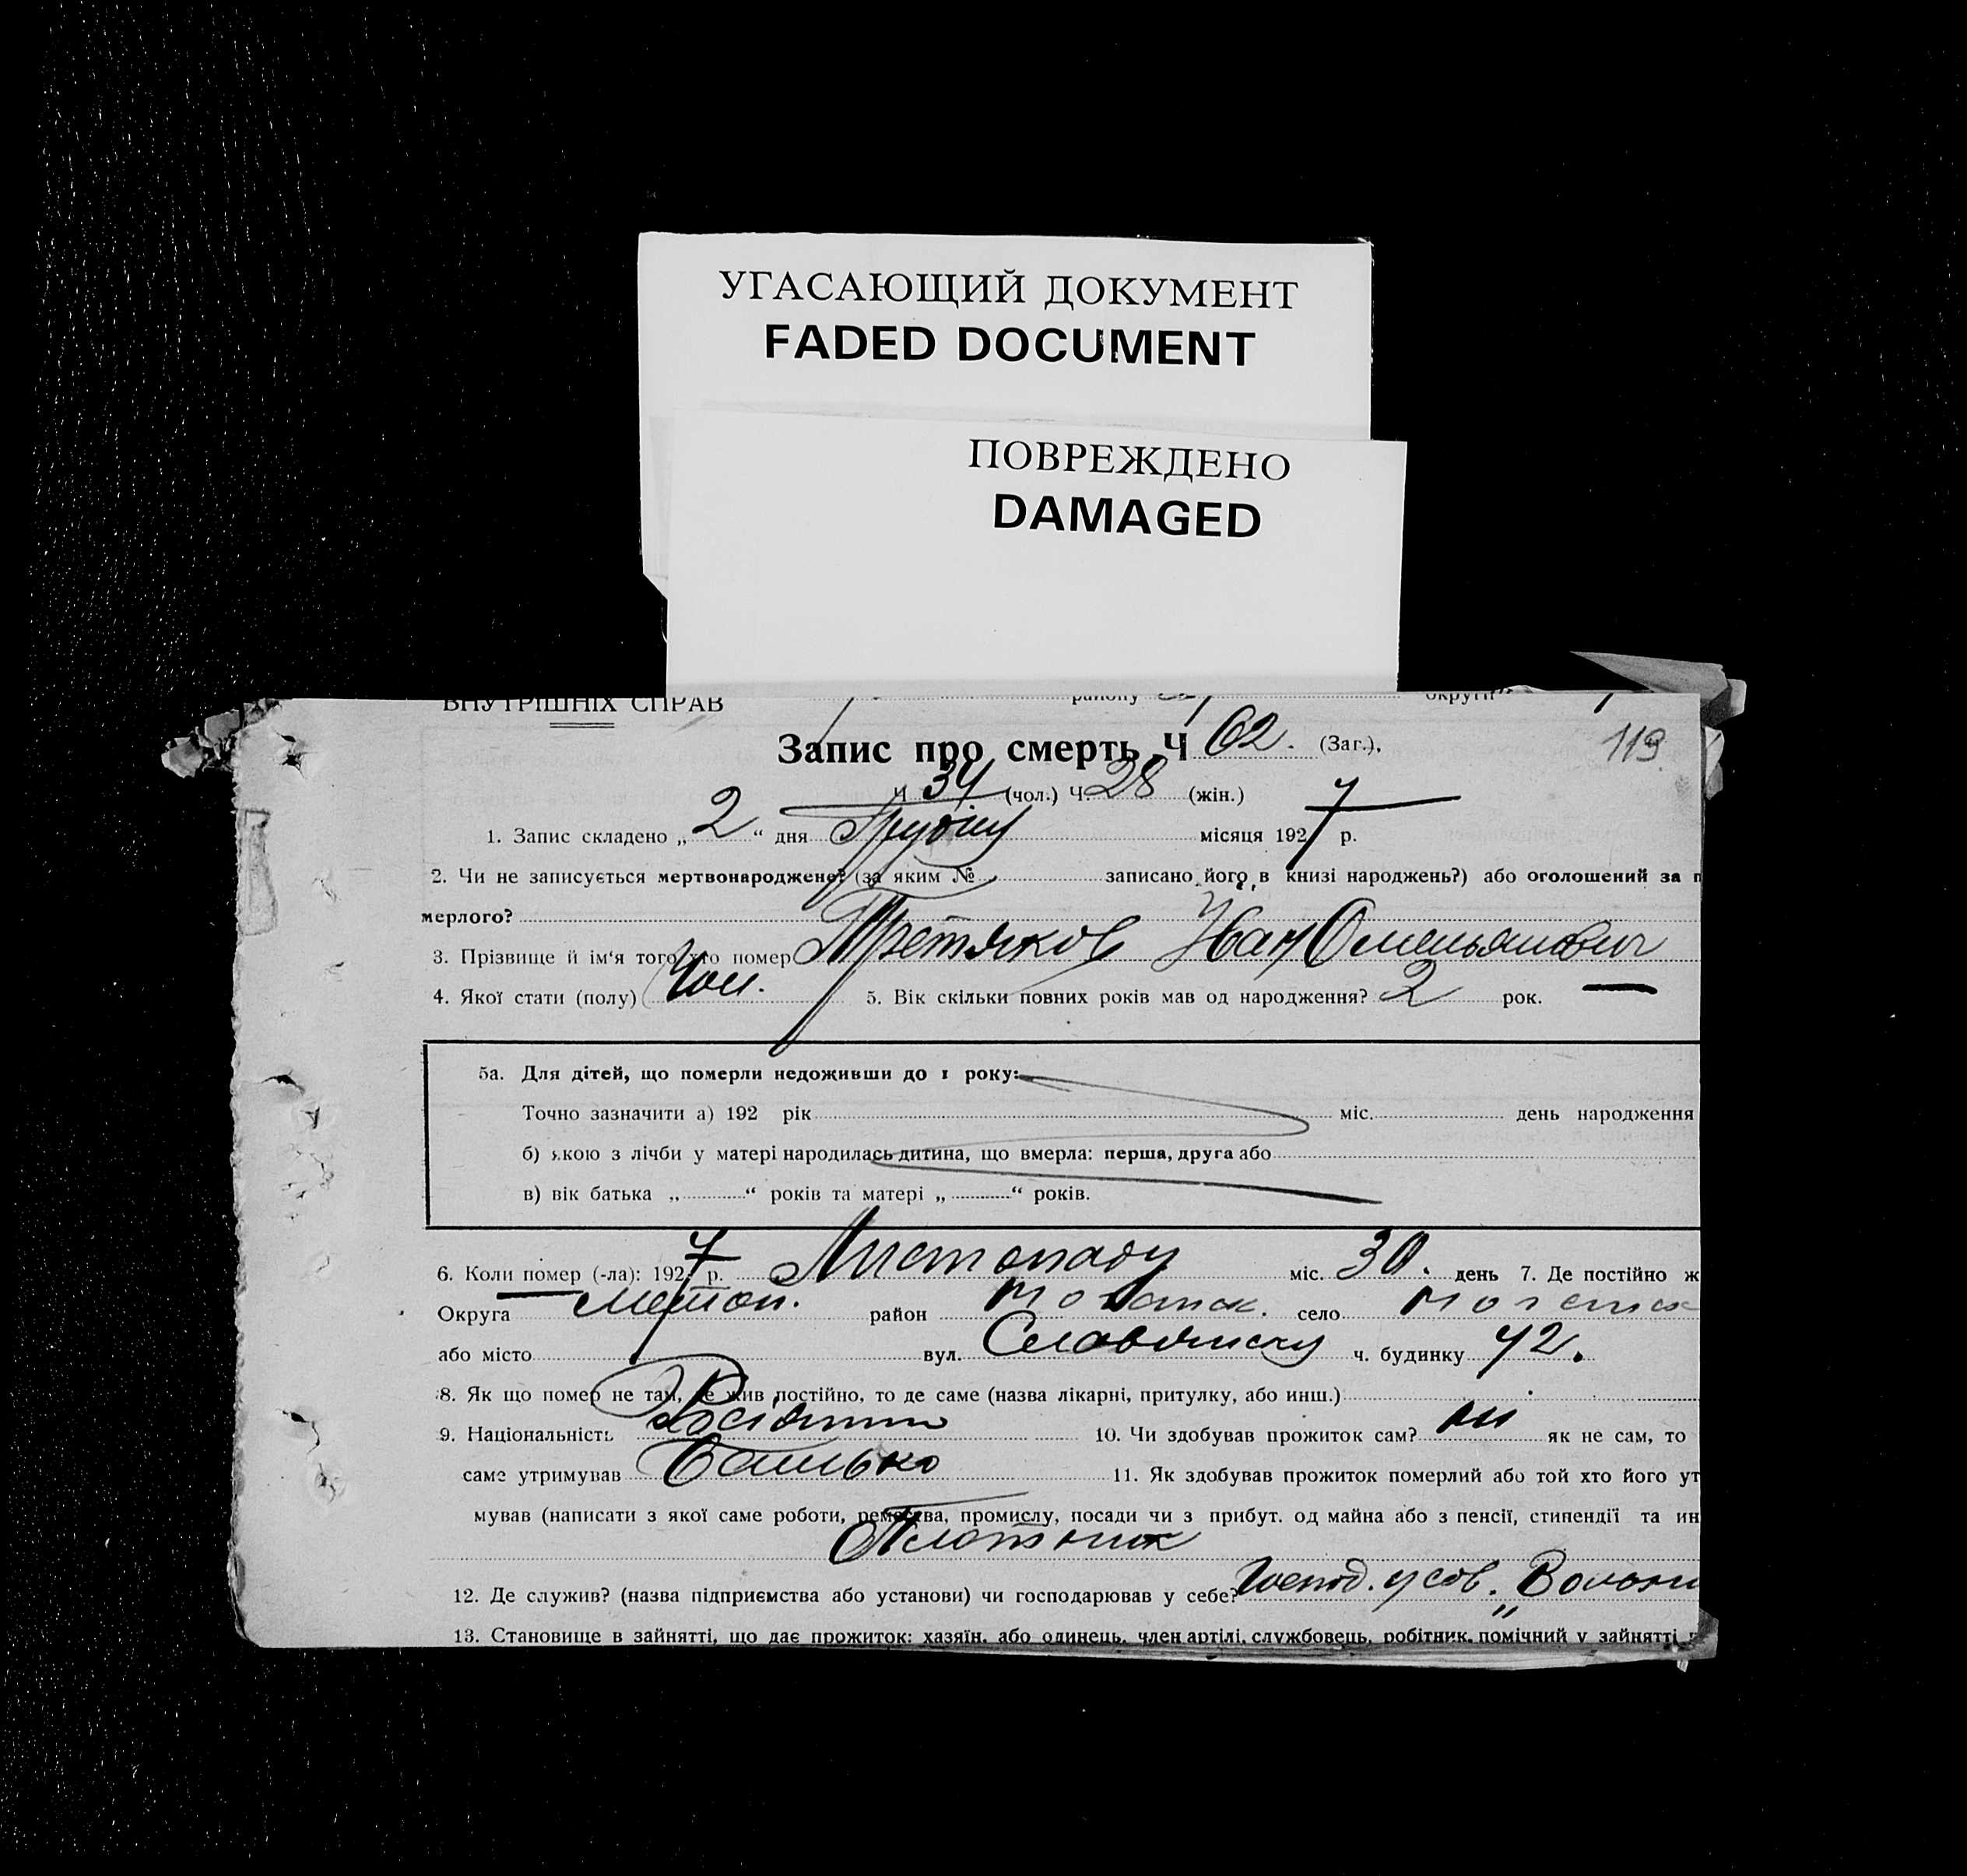 УГАСАЮЩИЙ ДОКУМЕНТ
FADED DOCUMENT
ПОВРЕЖДЕНО
DAMAGED
ВНУТРІШНІХ СПРАВ району округи
Запис про смерть Ч 62. (Заг.).
119
Ч 34 (чол.) Ч. 28 (жін.)
1. Запис складено „ 2 “ дня Грудня місяця 1927 р.
2. Чи не записується мертвонароджене? (за яким № записано його в книзі народжень?) або оголошений за п
мерлого?
3. Прізвище й ім‘я того хто помер Третяков Іван Омельянович
4. Якої стати (полу) Чол. 5. Вік скільки повних років мав од народження? 2 рок. —
5а. Для дітей, що померли недоживши до 1 року:
Точно зазначити а) 192 рік міс. день народження
б) якою з лічби у матері народилась дитина, що вмерла: перша, друга або
в) вік батька „ “ років та матері „ “ років.
6. Коли помер (-ла): 1927 р. Листопаду міс. 30. день 7. Де постійно ж
Округа район село
або місто вул. Словянську ч. будинку 42.
8. Як що помер не там, де жив постійно, то де саме (назва лікарні, притулку, або инш.)
9. Національність 10. Чи здобував прожиток сам? ні як не сам, то
саме утримував Батько 11. Як здобував прожиток померлий або той хто його ут
мував (написати з якої саме роботи, ремества, промислу, посади чи з прибут. од майна або з пенсії, стипендії та ин
Плотник
12. Де служив? (назва підприємства або установи) чи господарював у себе?
13. Становище в зайнятті, що дає прожиток: хазяїн, або одинець, член артілі, службовець, робітник, помічний у зайнятті